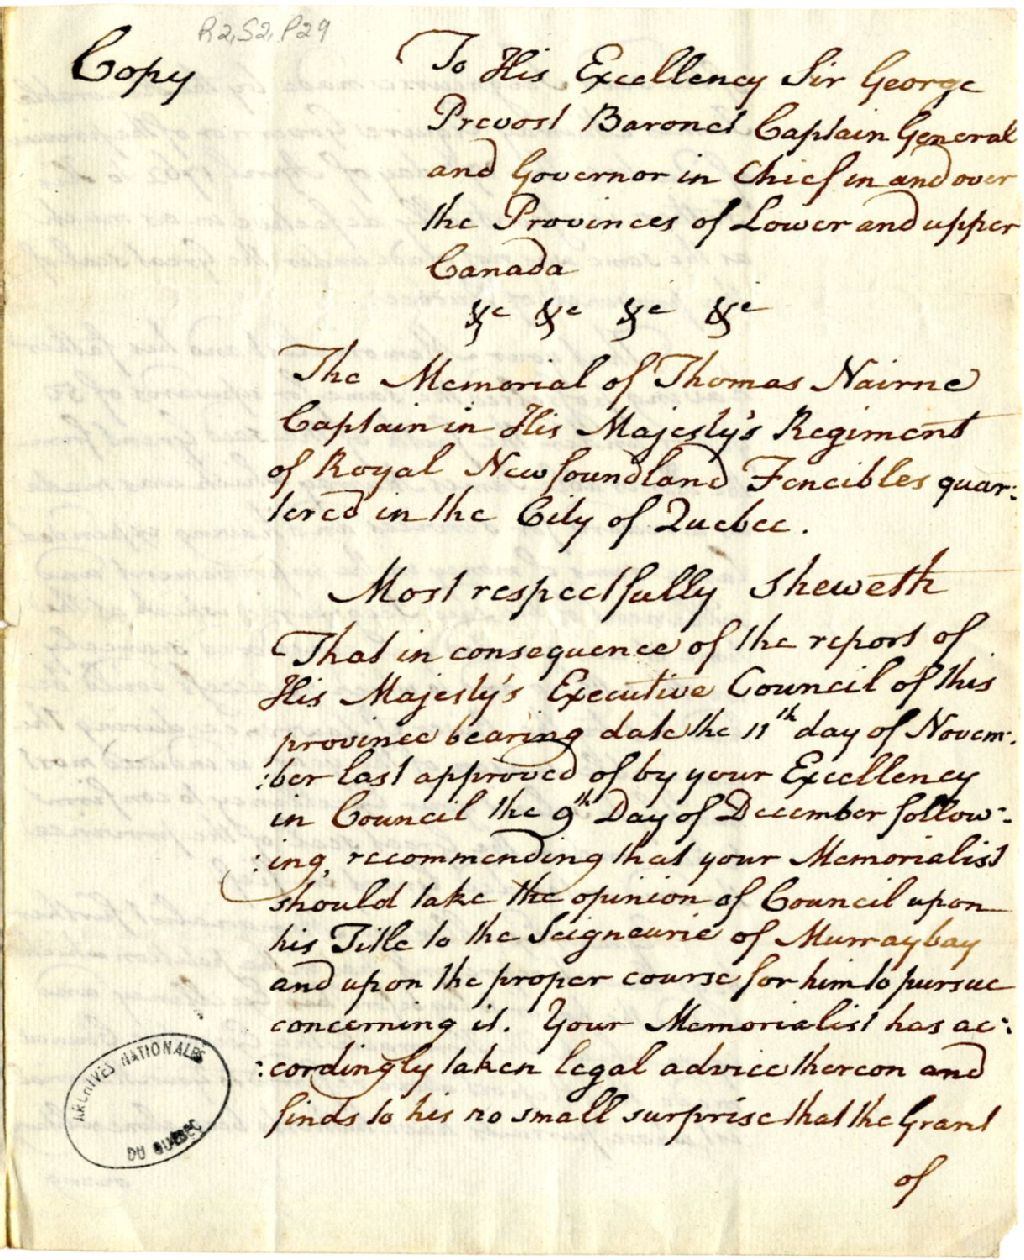 R2,S2,P29
Copy
To His Excellency Sir George
Prevost Baronet Captain General
and Governor in Chief in and over
the Provinces of Lower and upper
Canada
&c &c &c &c
The Memorial of Thomas Nairne
Captain in His Majesty's Regiment
of Royal Newfoundland Fencibles quar:
tered in the City of Quebec.
Most respectfully sheweth
That in consequence of the report of
His Majesty's Executive Council of this
province bearing date the 11th day of Novem:
:ber last approved of by your Excellency
in Council the 9th Day of December follow:
:ing, recommending that your Memorialist
should take the opinion of Council upon
his Title to the Seigneurie of Murraybay
and upon the proper course for him to pursue
concerning it. Your Memorialist has ac:
:cordingly taken legal advice thereon and
finds to his no small surprise that the Grant
of
ARCHIVES NATIONALES
DU QUÉBEC